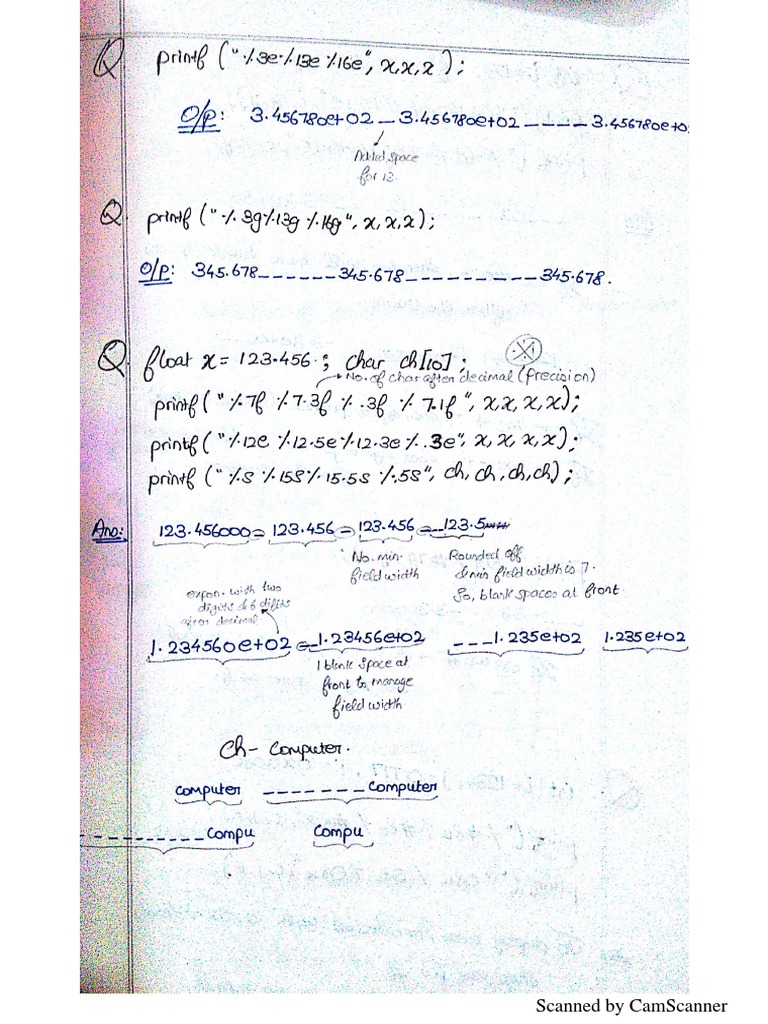 Q. printf ("%3e%13e %16e", x,x,x);
O/p: 3.456780e+02 _ 3.456780e+02 _ _ _ _ 3.456780e+0
Added space
for 13.
Q. printf ("%3g%13g %16g", x, x, x);
O/p: 345.678_ _ _ _ _ _345.678_ _ _ _ _ _ _ _ _ 345.678.
Q. float x = 123.456 ; char ch[10];
No. of char after decimal (precision)
printf ("%7f %7.3f %.3f %7.1f", x,x,x,x);
printf ("%12e %12.5e%12.3e%.3e", x, x, x, x);
printf ("%s %15s%15.5s %.5s", ch, ch, ch, ch);
Ans: 123.456000 _ 123.456 _ 123.456 _ _ _123.5
No. min. Rounded off
field width & min field width is 7.
So, blank spaces at front.
expon. with two
digits & 6 digits
after decimal
1.234560e+02 _ _1.23456e+02 _ _ _1.235e+02 1.235e+02
1 blank space at
front to manage
field width
Ch - Computer.
computer _ _ _ _ _ _ _ Computer
_ _ _ _ _ _ _ _ _ _ Compu Compu
Scanned by CamScanner